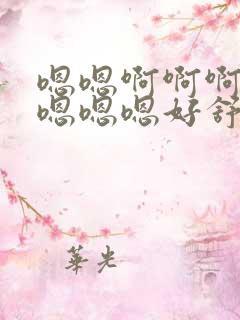 嗯嗯啊啊啊
嗯嗯嗯好舒
華光